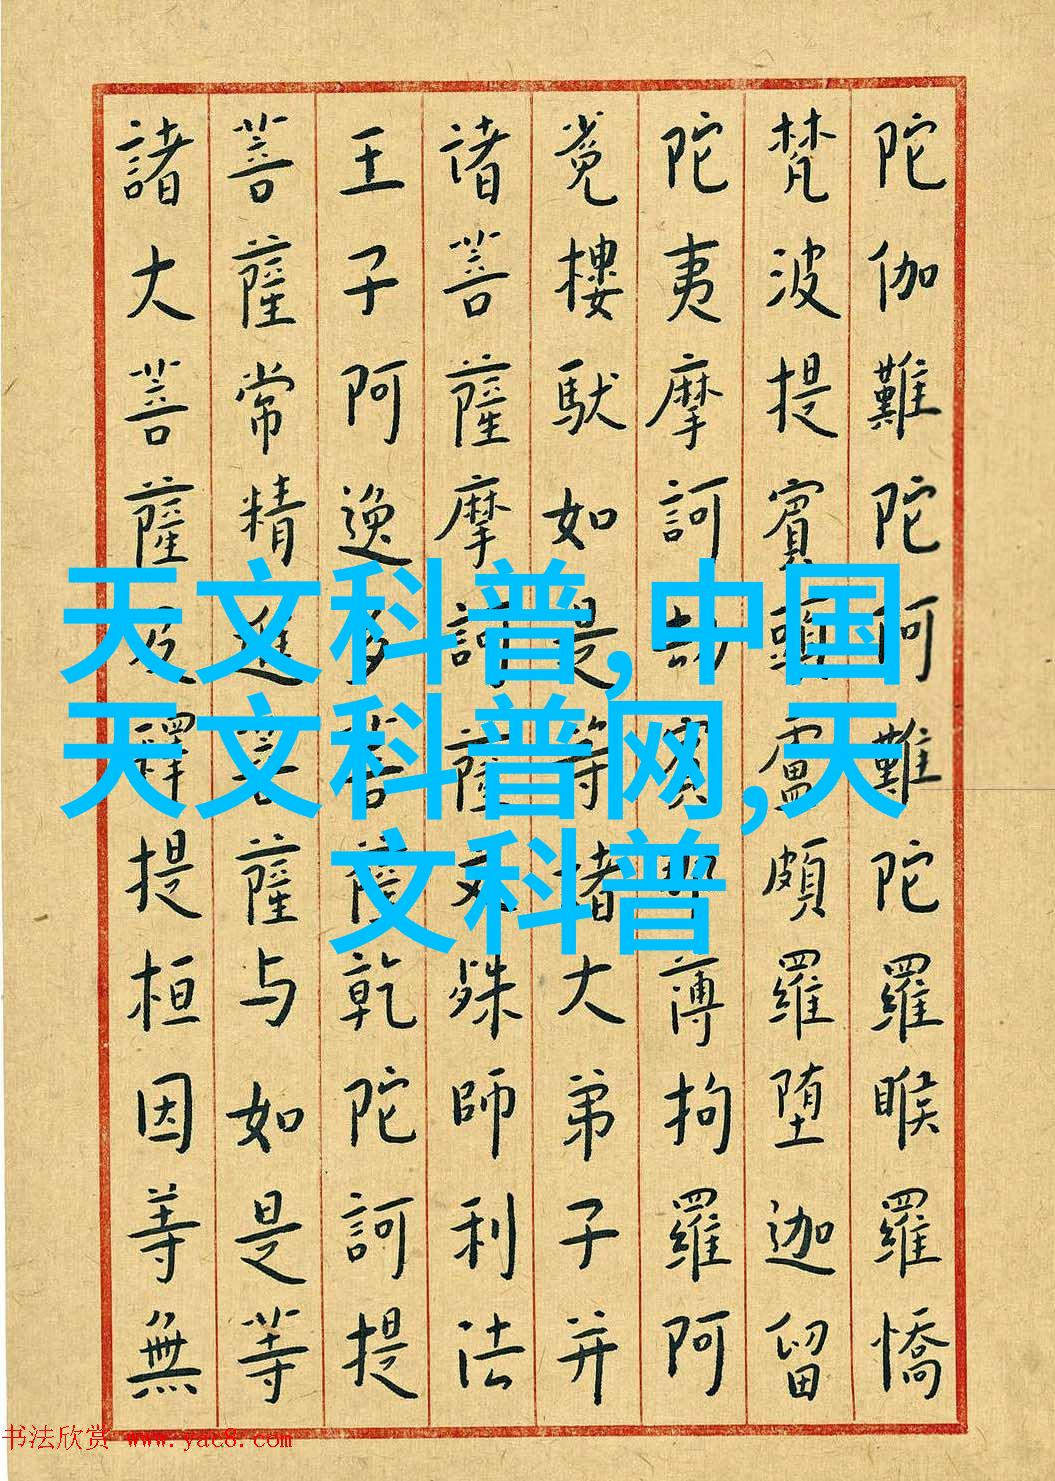 陀伽難陀阿難陀羅睺羅憍
梵波提賓頭盧頗羅堕迦留
陀夷摩訶劫賓那薄拘羅阿
㝹樓馱如是等諸大弟子并
诸菩薩摩訶薩文殊師利法
王子阿逸多菩薩乾陀訶提
菩薩常精進菩薩与如是等
諸大菩薩及釋提桓因等無
天文科普,中国
天文科普网,天
文科普
书法欣赏 www.yac8.com